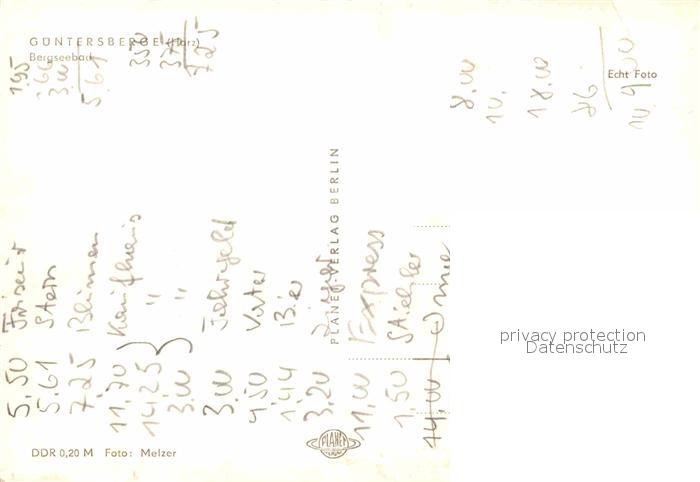 GÜNTERSBERGE (Harz)
Bergseebad
Echt Foto
PLANET-VERLAG BERLIN
1,95
1,66
3,00
5,61
350
375
725
8,00
10,
18,00
86,
5,50 Friseur
5,61 Stern
7,25 Blumen
11,70 Kaufhaus
14,25 "
3,00 "
3,00 Fahrgeld
4,50 Vater
1,44 Bier
3,20
11,00 Express
1,50
44,00 Omie
privacy protection
Datenschutz
PLANET
VERLAG
DDR 0,20 M Foto: Melzer